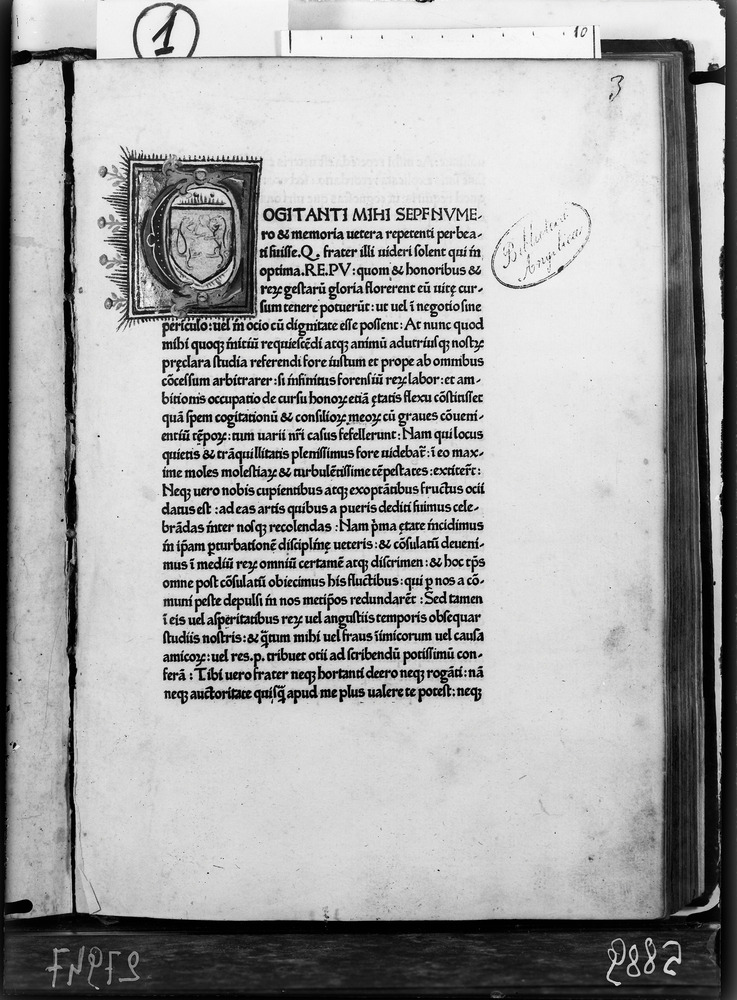 1
10
3
Biblioteca
Angelica
COGITANTI MIHI SEPFNVME-
ro & memoria uetera repetenti perbea-
ti fuisse.Q. frater illi uideri solent qui in
optima.RE.PV:quom & honoribus &
reꝝ gestarū gloria florerent eū uitę cur-
sum tenere potuerūt: ut uel ī negotio sine
periculo:uel in ocio cū dignitate esse possent: At nunc quod
mihi quoqꝫ initiū requiescēdi atqꝫ animū ad utriusqꝫ nostꝝ
pręclara studia referendi fore iustum et prope ab omnibus
cōcessum arbitrarer:si infinitus forensiū reꝝ labor:et am-
bitionis occupatio de cursu honoꝝ etiā ętatis flexu cōstitisset
quā spem cogitationū & consilioꝝ meoꝝ cū graues cōueni-
entiū tēpoꝝ:tum uarii nr̄i casus fefellerunt: Nam qui locus
quietis & trāquillitatis plenissimus fore uidebat̄: ī eo max-
ime moles molestiaꝝ & turbulētissime tēpestates:extiter̄t:
Neqꝫ uero nobis cupientibus atqꝫ exoptātibus fructus ocii
datus est :ad eas artis quibus a pueris dediti fuimus cele-
brādas inter nosqꝫ recolendas :Nam p̄ma ętate incidimus
in ip̄am ꝑturbationē disciplinę ueteris:& cōsulatū deueni-
mus ī mediū reꝝ omniū certamē atqꝫ discrimen:& hoc tp̄s
omne post cōsulatū obiecimus his fluctibus:qui ꝑ nos a cō-
muni peste depulsi in nos metip̄os redundarēt :Sed tamen
ī eis uel asperitatibus reꝝ uel angustiis temporis obsequar
studiis nostris:& q̄tum mihi uel fraus īimicorum uel causa
amicoꝝ:uel res.p. tribuet otii ad scribendū potissimū con-
ferā :Tibi uero frater neqꝫ hortanti deero neqꝫ rogāti:nā
neqꝫ auctoritate quisq̄ apud me plus ualere te potest:neqꝫ
27947
5889